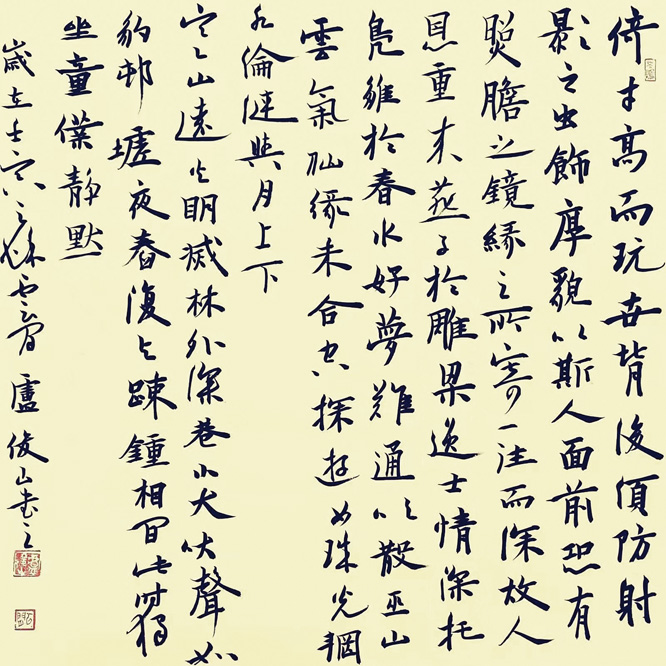 倚才高而玩世背後須防射
影之虫飾厚貌以斯人面前恐有
照膽之鏡緣之所寄一往而深故人
恩重来燕子於雕梁逸士情深托
鳧雛於春水好夢難通吹散巫山
雲氣仙緣未合空探游女珠光輞
水淪漣與月上下
寒山遠火明滅林外深巷小犬吠聲如
豹邨墟夜舂復与踈鐘相間此時獨
坐童僕靜默
歲在壬寅之秋雲間盧俊山書之